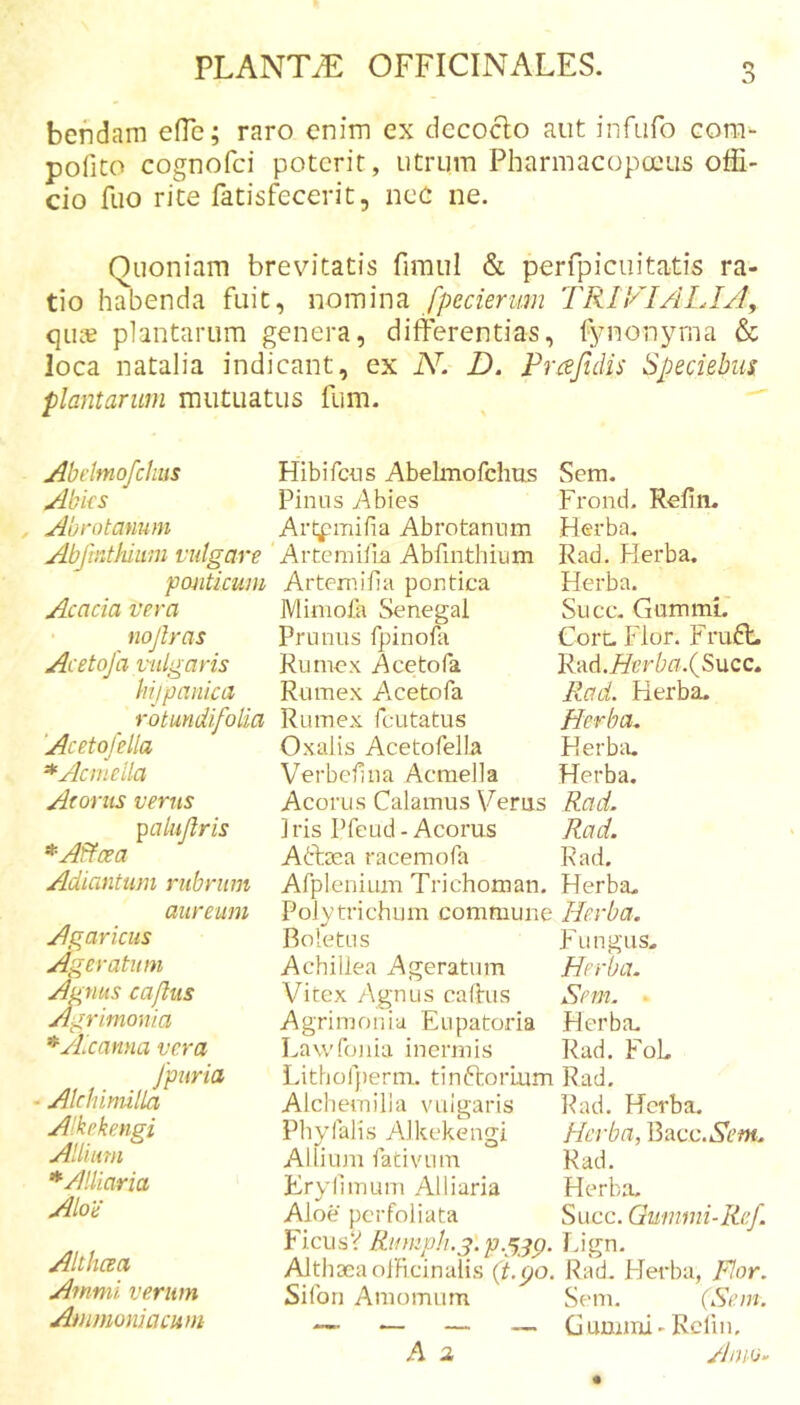 PLANTÆ OFFICINALES. 3
bendam eſſe; raro enim ex decocto aut infuſo com-
poſito cognoſci poterit, utrum Pharmacopœus offi-
cio ſuo rite ſatisfecerit, nec ne.
Quoniam brevitatis ſimul & perſpicuitatis ra-
tio habenda fuit, nomina ſpecierum TRIVIALIA,
quæ plantarum genera, differentias, ſynonyma &
loca natalia indicant, ex N. D. Præſidis Speciebus
plantarum mutuatus ſum.
Abelmoſchus Hibiſcus Abelmoſchus Sem.
Abies Pinus Abies Frond. Reſin.
Abrotanum Artemiſia Abrotanum Herba.
Abſinthium vulgare Artemiſia Abſinthium Rad. Herba.
ponticum Artemiſia pontica Herba.
Acacia vera Mimoſa Senegal Succ. Gummi.
noſtras Prunus ſpinoſa Cort. Flor. Fruct.
Acetoſa vulgaris Rumex Acetoſa Rad.Herba.(Succ.
hiſpanica Rumex Acetoſa Rad. Herba.
rotundifolia Rumex ſcutatus Herba.
Acetoſella Oxalis Acetoſella Herba.
*Acmella Verbeſina Acmella Herba.
Acorus verus Acorus Calamus Verus Rad.
paluſtris Iris Pſeud-Acorus Rad.
*Actœa Actæa racemoſa Rad.
Adiantum rubrum Aſplenium Trichoman. Herba.
aureum Polytrichum commune Herba.
Agaricus Boletus Fungus.
Ageratum Achillea Ageratum Herba.
Agnus caſtus Vitex Agnus caſtus Sem.
Agrimonia Agrimonia Eupatoria Herba.
*Alcanna vera Lawſonia inermis Rad. Fol.
ſpuria Lithoſperm. tinctorium Rad.
Alchimilla Alchemilia vulgaris Rad. Herba.
Alkekengi Phyſalis Alkekengi Herba, Bacc.Sem.
Allium Allium ſativum Rad.
*Alliaria Eryſimum Alliaria Herba.
Aloë Aloë perfoliata Succ. Gummi-Reſ.
Ficus? Rumph.3.p.539. Lign.
Althæa Althæa officinalis (t.90. Rad. Herba, Flor.
Ammi verum Siſon Amomum Sem. (Sem.
Ammoniacum — — — — Gummi-Reſin.
A 2 Amo-